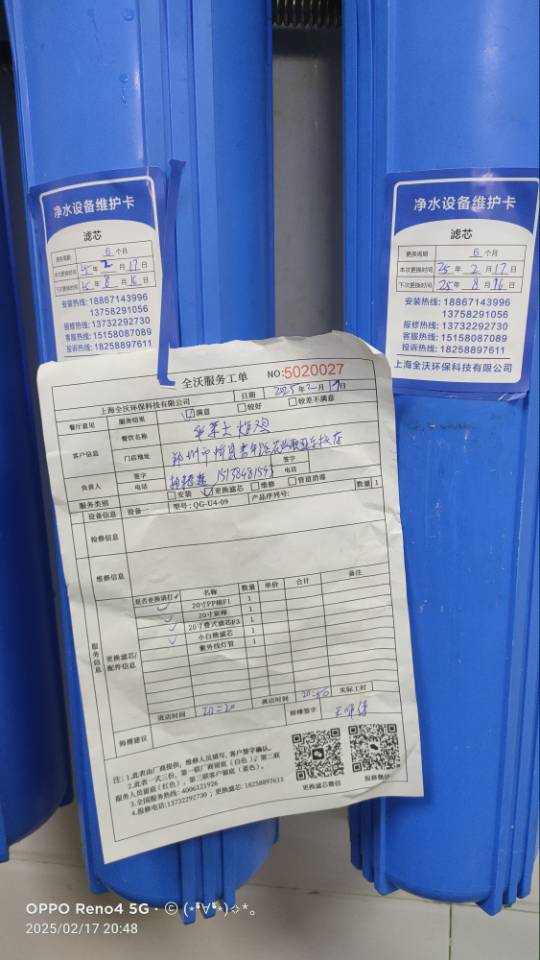 净水设备维护卡
滤芯
更换周期 6 个月
本次更换时间 25 年 2 月 17 日
下次更换时间 25 年 8 月 16 日
安装热线: 18867143996
13758291056
报修热线: 13732292730
客服热线: 15158087089
投诉热线: 18258897611
净水设备维护卡
滤芯
更换周期 6 个月
本次更换时间 25 年 2 月 17 日
下次更换时间 25 年 8 月 16 日
安装热线: 18867143996
13758291056
报修热线: 13732292730
客服热线: 15158087089
投诉热线: 18258897611
上海全沃环保科技有限公司
全沃服务工单 NO:5020027
上海全沃环保科技有限公司 日期 2025年2月17日
餐厅意见 服务结果 ☑满意 □较好 □较差不满意
客户信息 餐饮名称 华莱士
门店地址 郑州市
负责人 签字 签字
电话 15738481543 电话
服务类别 □安装 ☑更换滤芯 □维修 □管道消毒
设备信息 设备一 型号: QG-U4-09 产品序列号: 数量 1
检修信息
维修信息
服务信息 更换滤芯/配件信息
是否更换请打✓ 名称 数量 单价 合计 备注
✓ 20寸PP棉F1 1
✓ 20寸 1
✓ 20寸费式滤芯F3 1
✓ 小白熊滤芯 1
紫外线灯管 1
进店时间 20:20 离店时间 20:50 实际工时
保障建议 签字
注: 1.此表由厂商提供, 维修人员填写, 客户签字确认。
2.此表一式三份, 第一联厂商留底(白色); 第二联
服务人员留底(红色), 第三联客户留底(黄色)。
3.全国服务热线: 4006121926
4.报修电话:13732292730 ; 更换滤芯: 18258897611
更换滤芯微信
报修微信
OPPO Reno4 5G · ©
2025/02/17 20:48